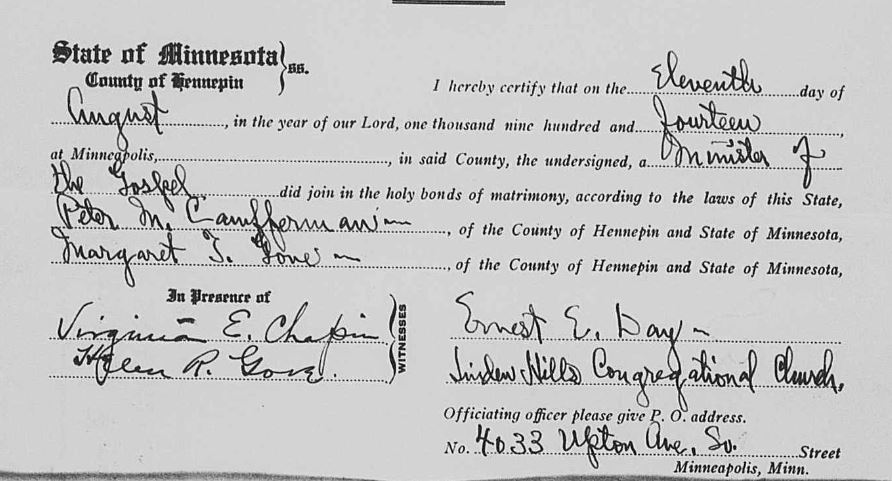 State of Minnesota
County of Hennepin } ss.
I hereby certify that on the Eleventh day of
August, in the year of our Lord, one thousand nine hundred and Fourteen,
at Minneapolis, in said County, the undersigned, a Minister of
the Gospel did join in the holy bonds of matrimony, according to the laws of this State,
Peter M. Caufferman, of the County of Hennepin and State of Minnesota,
Margaret T. Gove, of the County of Hennepin and State of Minnesota,
In Presence of
Virginia E. Chapin
Helen R. Gove.
WITNESSES
Ernest E. Day
Linden Hills Congregational Church,
Officiating officer please give P. O. address.
No. 4033 Upton Ave. So. Street
Minneapolis, Minn.